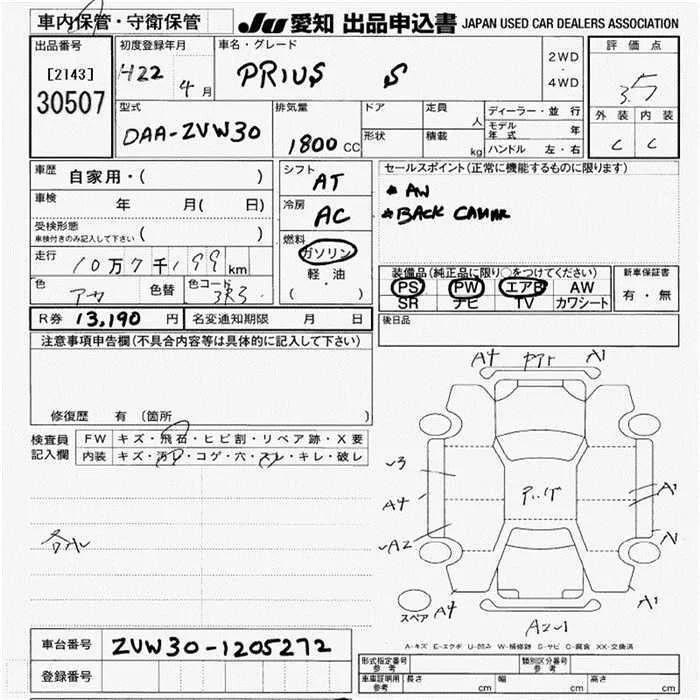 車内保管・守衛保管
JU 愛知 出品申込書 JAPAN USED CAR DEALERS ASSOCIATION
出品番号
[2143]
30507
初度登録年月
H22 4月
車名・グレード
PRIUS S
2WD
・
4WD
評価点
3.5
外装 内装
C C
型式
DAA-ZVW30
排気量
1800 CC
ドア
形状
定員 人
積載 kg
ディーラー・並行
モデル年式 年
ハンドル 左・右
車歴 自家用・( )
車検 年 月( 日)
受検形態
車検付きのみ記入して下さい ( )
走行 10万7千199 km
色 アカ 色替 色コード 3R3
シフト
AT
冷房
AC
燃料
ガソリン
軽・油
( )
セールスポイント(正常に機能するものに限ります)
* AW
* BACK CAMAR
装備品(純正品に限り○をつけてください)
PS PW エアB AW
SR ナビ TV カワシート
新車保証書
有・無
R券 13,190 円 名変通知期限 月 日
後日品
注意事項申告欄(不具合内容等は具体的に記入して下さい)
修復歴 有 (箇所 )
検査員
記入欄
FW キズ・飛石・ヒビ割・リペア跡・X要
内装 キズ・汚レ・コゲ・穴・スレ・キレ・破レ
A4 A1
A4
A2
A1
A1
スペア A4 A1
A-キズ E-エクボ U-凹み W-補修跡 S-サビ C-腐食 XX-交換済
車台番号 ZVW30-1205272
登録番号
形式指定番号 参考 類別区分番号 参考
車庫証明用 参考 長さ cm 幅 cm 高さ cm